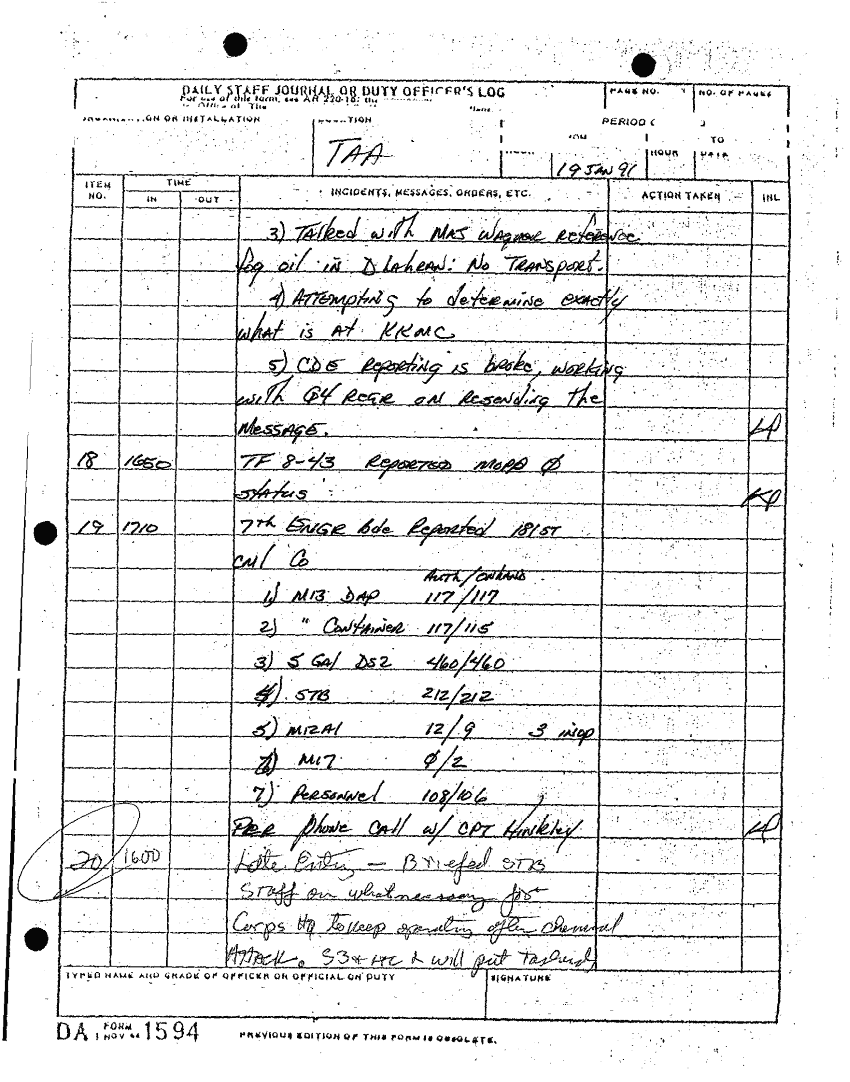 DAILY STAFF JOURNAL OR DUTY OFFICER'S LOG
PAGE NO.
NO. OF PAGES
For use of this form, see AR 220-15; the
PERIOD
TO
TAA
HOUR
19 JAN 91
HOUR
ITEM NO.
TIME
IN
OUT
INCIDENTS, MESSAGES, ORDERS, ETC.
ACTION TAKEN
INL
3) TALKED with MAJ WAGNER Reference
fog oil in DhAHRAN: No TRANSPORT.
4) ATTEMPTING to determine exactly
what is At KKMC
5) CDE Reporting is broke, working
with G4 REAR on Resending The
MESSAGE.
18 1650 TF 8-43 REPORTED MOPP Ø
status
19 1710 7th ENGR bde Reported 181st
CML Co
AUTH/ONHAND
1) M13 DAP 117/117
2) " CONTAINER 117/115
3) 5 GAL DS2 460/460
4) STB 212/212
5) M12A1 12/9 3 inop
6) M17 Ø/2
7) Personnel 108/106
PER phone CALL w/ CPT Hinkley
20 1600 Late Entry - Briefed STB
Staff on what necessary for
Corps HQ to keep operating after chemical
Attack. S3 & HC will put
TYPED NAME AND GRADE OF OFFICER OR OFFICIAL ON DUTY
SIGNATURE
DA FORM 1594
1 NOV
PREVIOUS EDITION OF THIS FORM IS OBSOLETE.